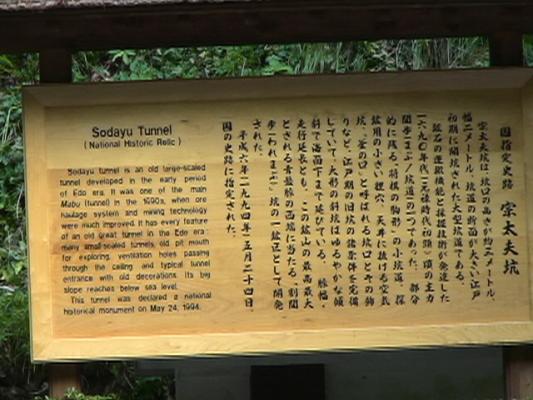 Sodayu Tunnel
( National Historic Relic )
Sodayu tunnel is an old large-scaled
tunnel developed in the early period
of Edo era. It was one of the main
Mabu (tunnel) in the 1690s, when ore
haulage system and mining technology
were much improved. It has every feature
of an old great tunnel in the Edo era :
many small-scaled tunnels, old pit mouth
for exploring, ventilation holes passing
through the ceiling and typical tunnel
entrance with old decorations. Its big
slope reaches below sea level.
This tunnel was declared a national
historical monument on May 24, 1994.
国指定史跡 宗太夫坑
宗太夫坑は、坑口の高さが約三メートル、
幅二メートル、坑道の断面が大きい江戸
初期に開坑された大型坑道である。
鉱石の運搬機能と採掘技術が発達した
一六九〇年代(元禄時代初頭)頃の主力
間歩(まぶ/坑道)の一つであった。部分
的に残る「将棋の駒形」の小坑道、探
鉱用の小さい狸穴、天井に抜ける空気
坑、「釜の口」と呼ばれる坑口と各々の飾
りなど、江戸期の旧坑の諸条件を完備
していて、大形の斜坑はゆるやかな傾
斜で海面下まで延びている。 脈幅・
走行延長とも、この鉱山の最高最大
とされる青盤脈の西端に当たる、割間
歩(われまぶ)坑の一鉱区として開発
された。
平成六年(一九九四年)五月二十四日、
国の史跡に指定された。